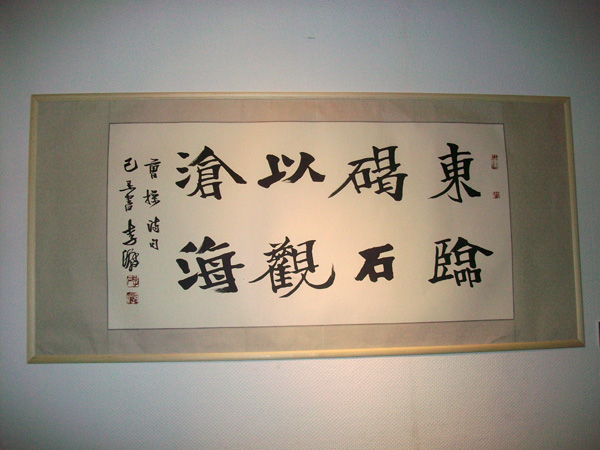 東臨
碣石
以觀
滄海
曹操詩句